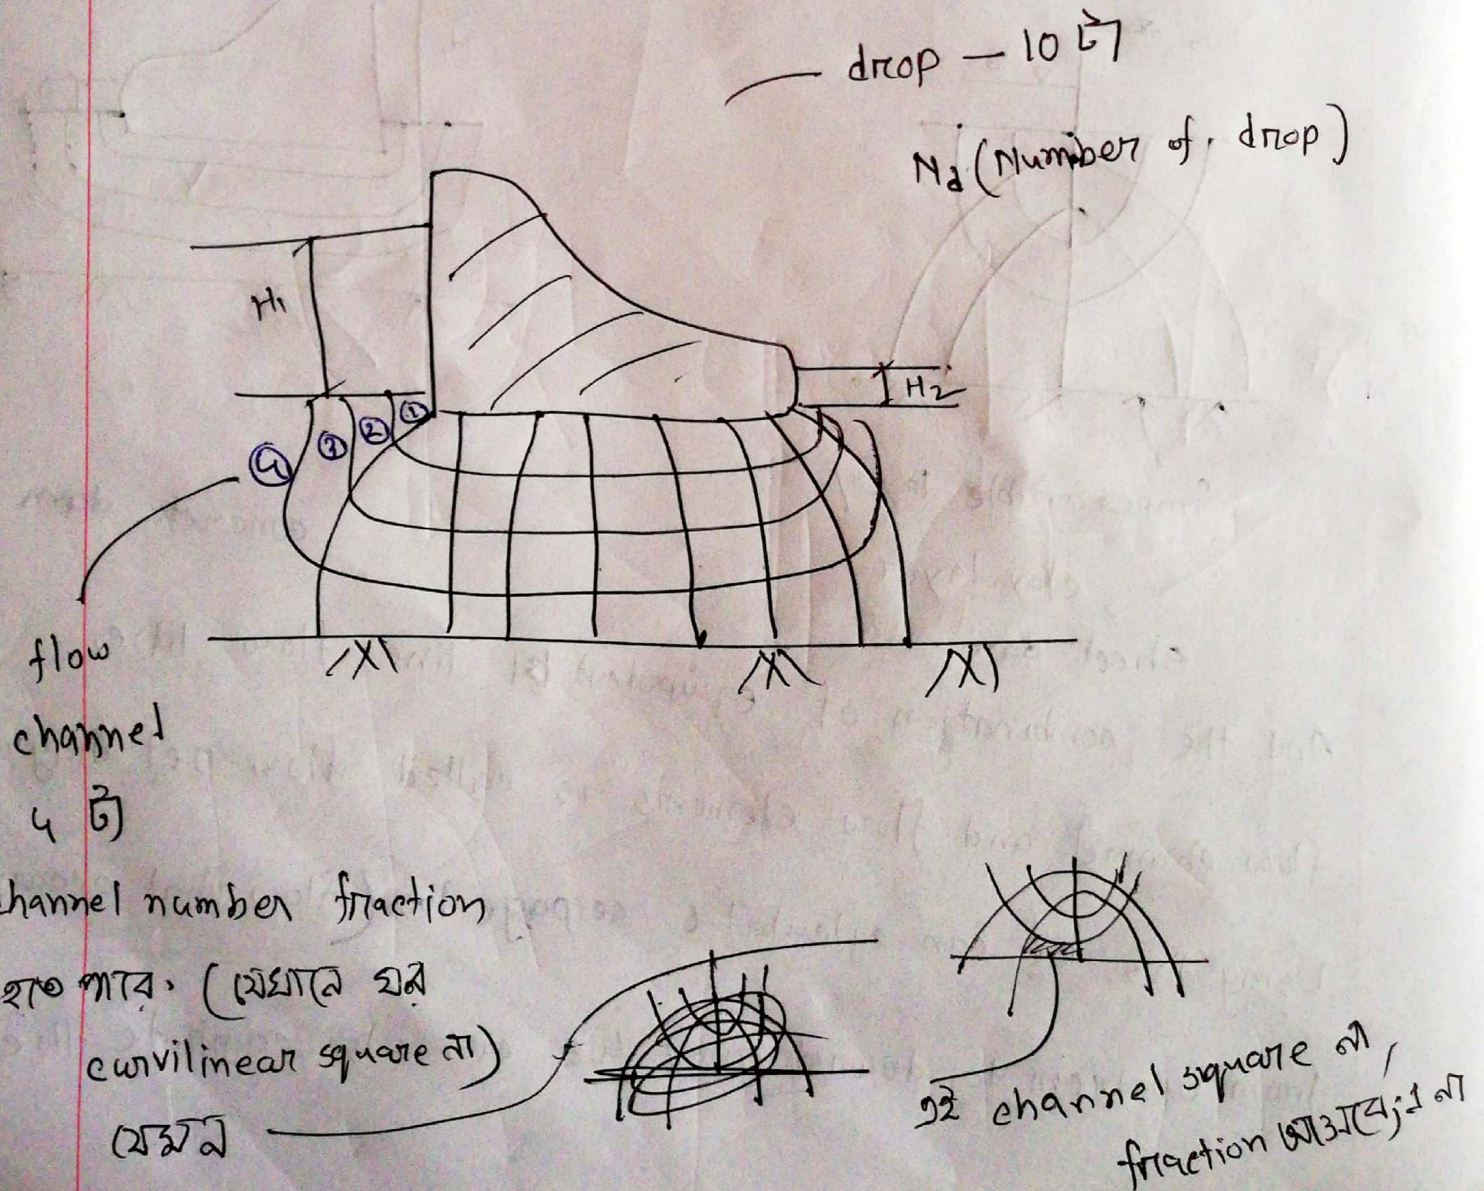 drop — 10 টা
Nd (Number of drop)
H1
H2
1
2
3
4
flow
channel
4 টা
channel number fraction
হতে পারে. (যেখানে ঘর
curvilinear square না)
যেমন
এই channel square না,
fraction না